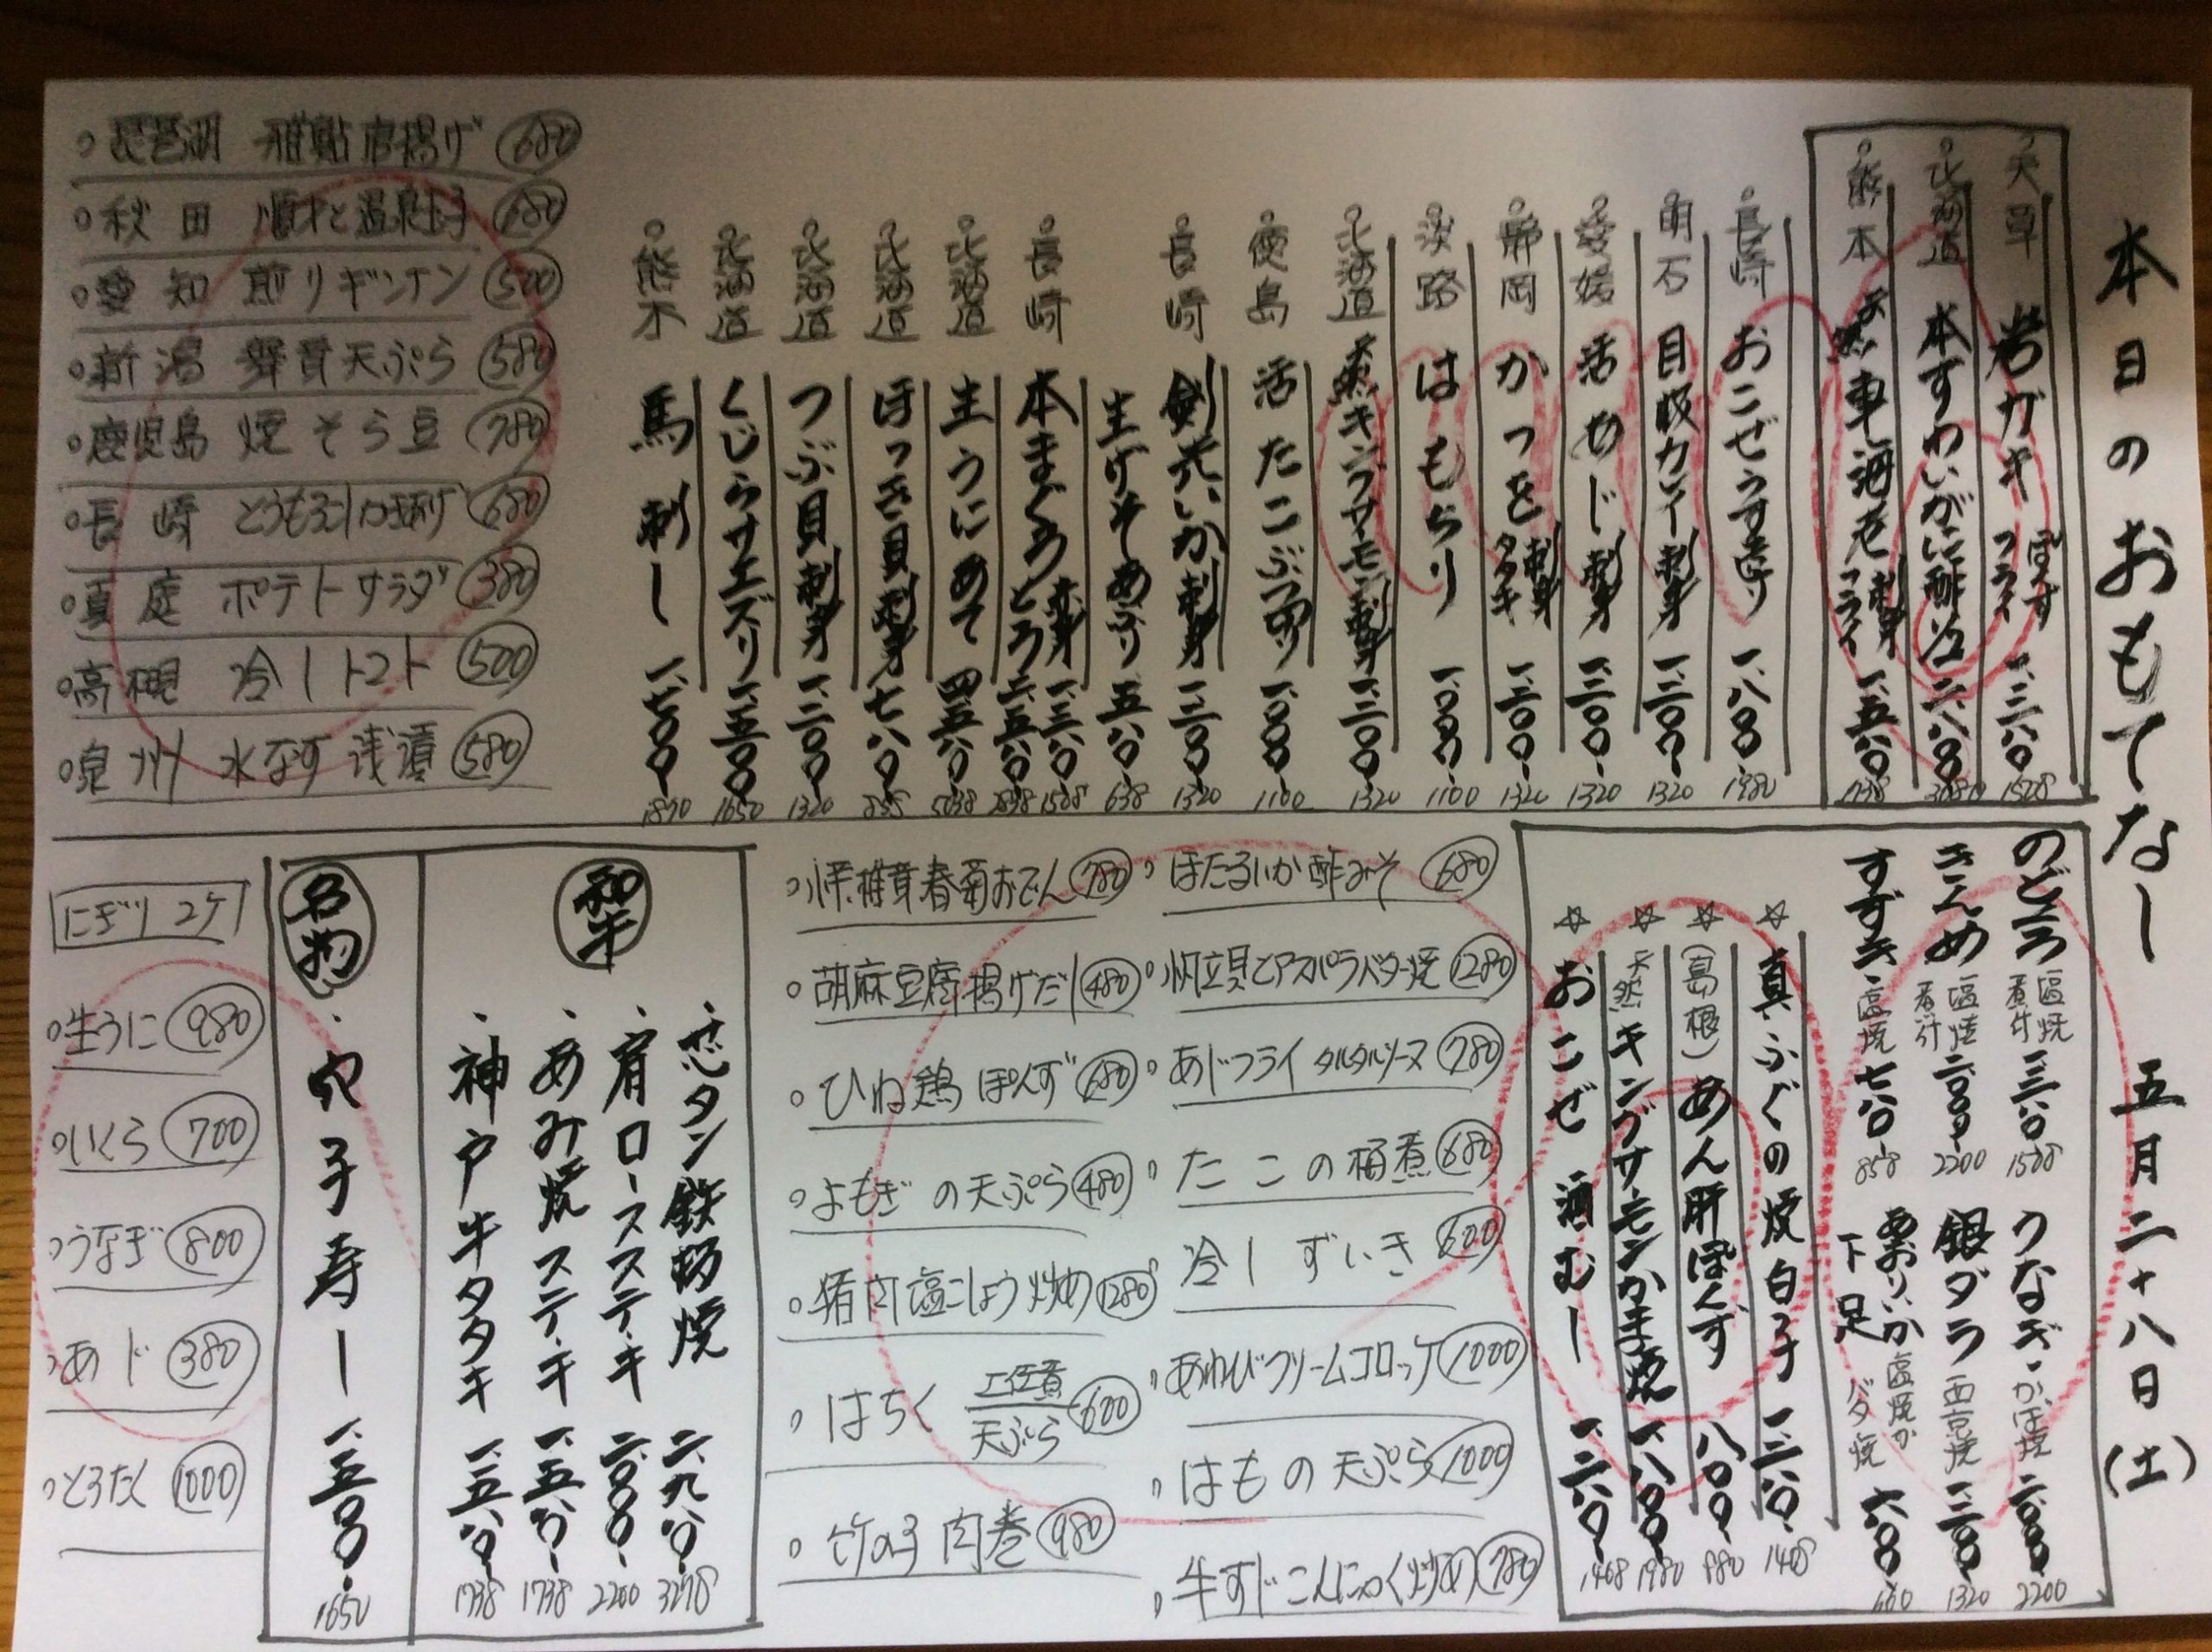 本日のおもてなし 五月二十八日(土)
天草 岩ガキ ぽんず フライ 一、三八〇 1518
北海道 本ずわいがに酢 二、八〇〇 3080
熊本 天然 車海老 刺身 フライ 一、五八〇 1738
長崎 おこぜうす造り 一、八〇〇 1980
明石 目板カレイ刺身 一、二〇〇 1320
愛媛 活あじ刺身 一、二〇〇 1320
静岡 かつを 刺身 タタキ 一、二〇〇 1320
淡路 はもちり 一、〇〇〇 1100
北海道 天然キングサーモン刺身 一、二〇〇 1320
徳島 活たこぶつ切り 一、〇〇〇 1100
長崎 剣先いか刺身 一、二〇〇 1320
生げそあぶり 五八〇 638
長崎 本まぐろ 赤身 一、三八〇 1518 とろ 二、五八〇 2838
北海道 生うにあて 四、五八〇 5038
北海道 ほっき貝刺身 七八〇 858
北海道 つぶ貝刺身 一、二〇〇 1320
北海道 くじらサエズリ 一、五〇〇 1650
熊本 馬刺し 一、七〇〇 1870
琵琶湖 稚鮎唐揚げ 680
秋田 順才と温泉玉子 680
愛知 煎りギンナン 500
新潟 舞茸天ぷら 580
鹿児島 焼そら豆 780
長崎 とうもろこしかき揚げ 680
真庭 ポテトサラダ 380
高槻 冷しトマト 500
泉州 水なす浅漬 580
のどぐろ 塩焼 煮付 一、三八〇 1518
きんめ 塩焼 煮付 二、〇〇〇 2200
すずき・塩焼 七八〇 858
うなぎ・かば焼 二、〇〇〇 2200
銀ダラ 西京焼 一、二〇〇 1320
あおりいか下足 塩焼か バタ焼 六〇〇 660
☆ 真ふぐの焼白子 一、二八〇 1408
☆ (島根) あん肝ぽんず 八〇〇 880
☆ 天然キングサーモンかま焼 一、八〇〇 1980
☆ おこぜ 酒むし 1408
ほたるいか酢みそ 680
帆立貝とアスパラバター焼 1280
あじフライ タルタルソース 780
たこの桶煮 680
冷しずいき 600
あわびクリームコロッケ 1000
はもの天ぷら 1000
牛すじこんにゃく炒め 780
椎茸春菊おでん 780
胡麻豆腐揚げだし 480
ひね鶏ぽんず 680
よもぎの天ぷら 480
猪肉塩こしょう炒め 1280
はちく 土佐煮 天ぷら 600
竹の子肉巻 980
和牛
・芯タン鉄板焼 二、九八〇 3278
・肩ロースステーキ 二、〇〇〇 2200
・あみ焼ステーキ 一、五八〇 1738
・神戸牛タタキ 一、五八〇 1738
名物
・穴子寿し 一、五〇〇 1650
にぎり2ケ
生うに 980
いくら 700
うなぎ 800
あじ 380
とろたく 1000